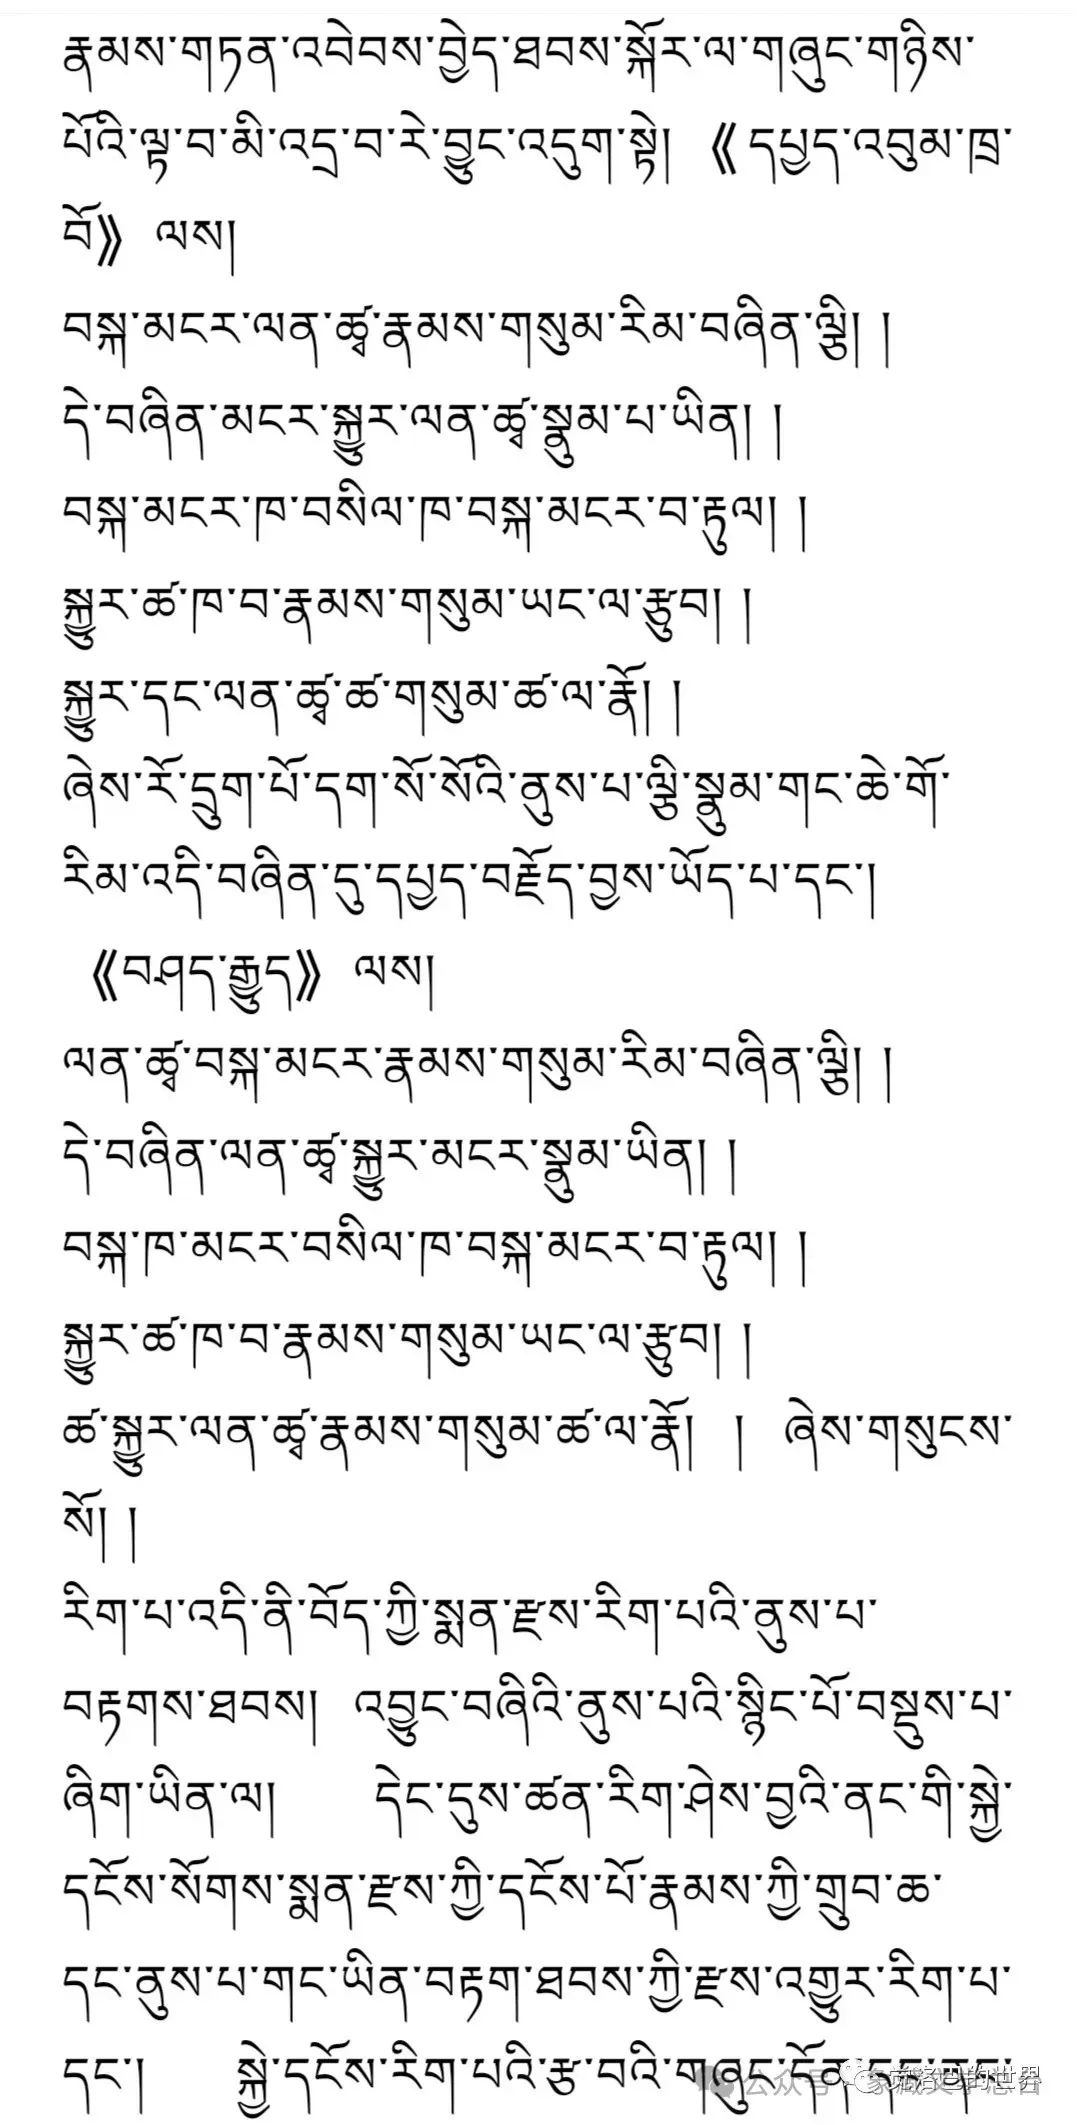 རྣམས་གཏན་འབེབས་བྱེད་ཐབས་སྐོར་ལ་གཞུང་གཉིས་
པོའི་ལྟ་བ་མི་འདྲ་བ་རེ་བྱུང་འདུག་སྟེ། 《དཔྱད་འབུམ་ཁྲ་
བོ》 ལས།
བསྐ་མངར་ལན་ཚྭ་རྣམས་གསུམ་རིམ་བཞིན་ལྕི། །
དེ་བཞིན་མངར་སྐྱུར་ལན་ཚྭ་སྣུམ་པ་ཡིན། །
བསྐ་མངར་ཁ་བསིལ་ཁ་བསྐ་མངར་བ་རྟུལ། །
སྐྱུར་ཚ་ཁ་བ་རྣམས་གསུམ་ཡང་ལ་རྩུབ། །
སྐྱུར་དང་ལན་ཚྭ་ཚ་གསུམ་ཚ་ལ་རྣོ། །
ཞེས་རོ་དྲུག་པོ་དག་སོ་སོའི་ནུས་པ་ལྕི་སྣུམ་གང་ཆེ་གོ་
རིམ་འདི་བཞིན་དུ་དཔྱད་བརྗོད་བྱས་ཡོད་པ་དང་།
《བཤད་རྒྱུད》 ལས།
ལན་ཚྭ་བསྐ་མངར་རྣམས་གསུམ་རིམ་བཞིན་ལྕི། །
དེ་བཞིན་ལན་ཚྭ་སྐྱུར་མངར་སྣུམ་ཡིན། །
བསྐ་ཁ་མངར་བསིལ་ཁ་བསྐ་མངར་བ་རྟུལ། །
སྐྱུར་ཚ་ཁ་བ་རྣམས་གསུམ་ཡང་ལ་རྩུབ། །
ཚ་སྐྱུར་ལན་ཚྭ་རྣམས་གསུམ་ཚ་ལ་རྣོ། ། ཞེས་གསུངས་
སོ། །
རིག་པ་འདི་ནི་བོད་ཀྱི་སྨན་རྫས་རིག་པའི་ནུས་པ་
བརྟགས་ཐབས། འབྱུང་བཞིའི་ནུས་པའི་སྙིང་པོ་བསྡུས་པ་
ཞིག་ཡིན་ལ། དེང་དུས་ཚན་རིག་ཤེས་བྱའི་ནང་གི་སྐྱེ་
དངོས་སོགས་སྨན་རྫས་ཀྱི་དངོས་པོ་རྣམས་ཀྱི་གྲུབ་ཆ་
དང་ནུས་པ་གང་ཡིན་བརྟག་ཐབས་ཀྱི་རྫས་འགྱུར་རིག་པ་
དང་། སྐྱེ་དངོས་རིག་པའི་རྩ་བའི་གཞུང་
公众号